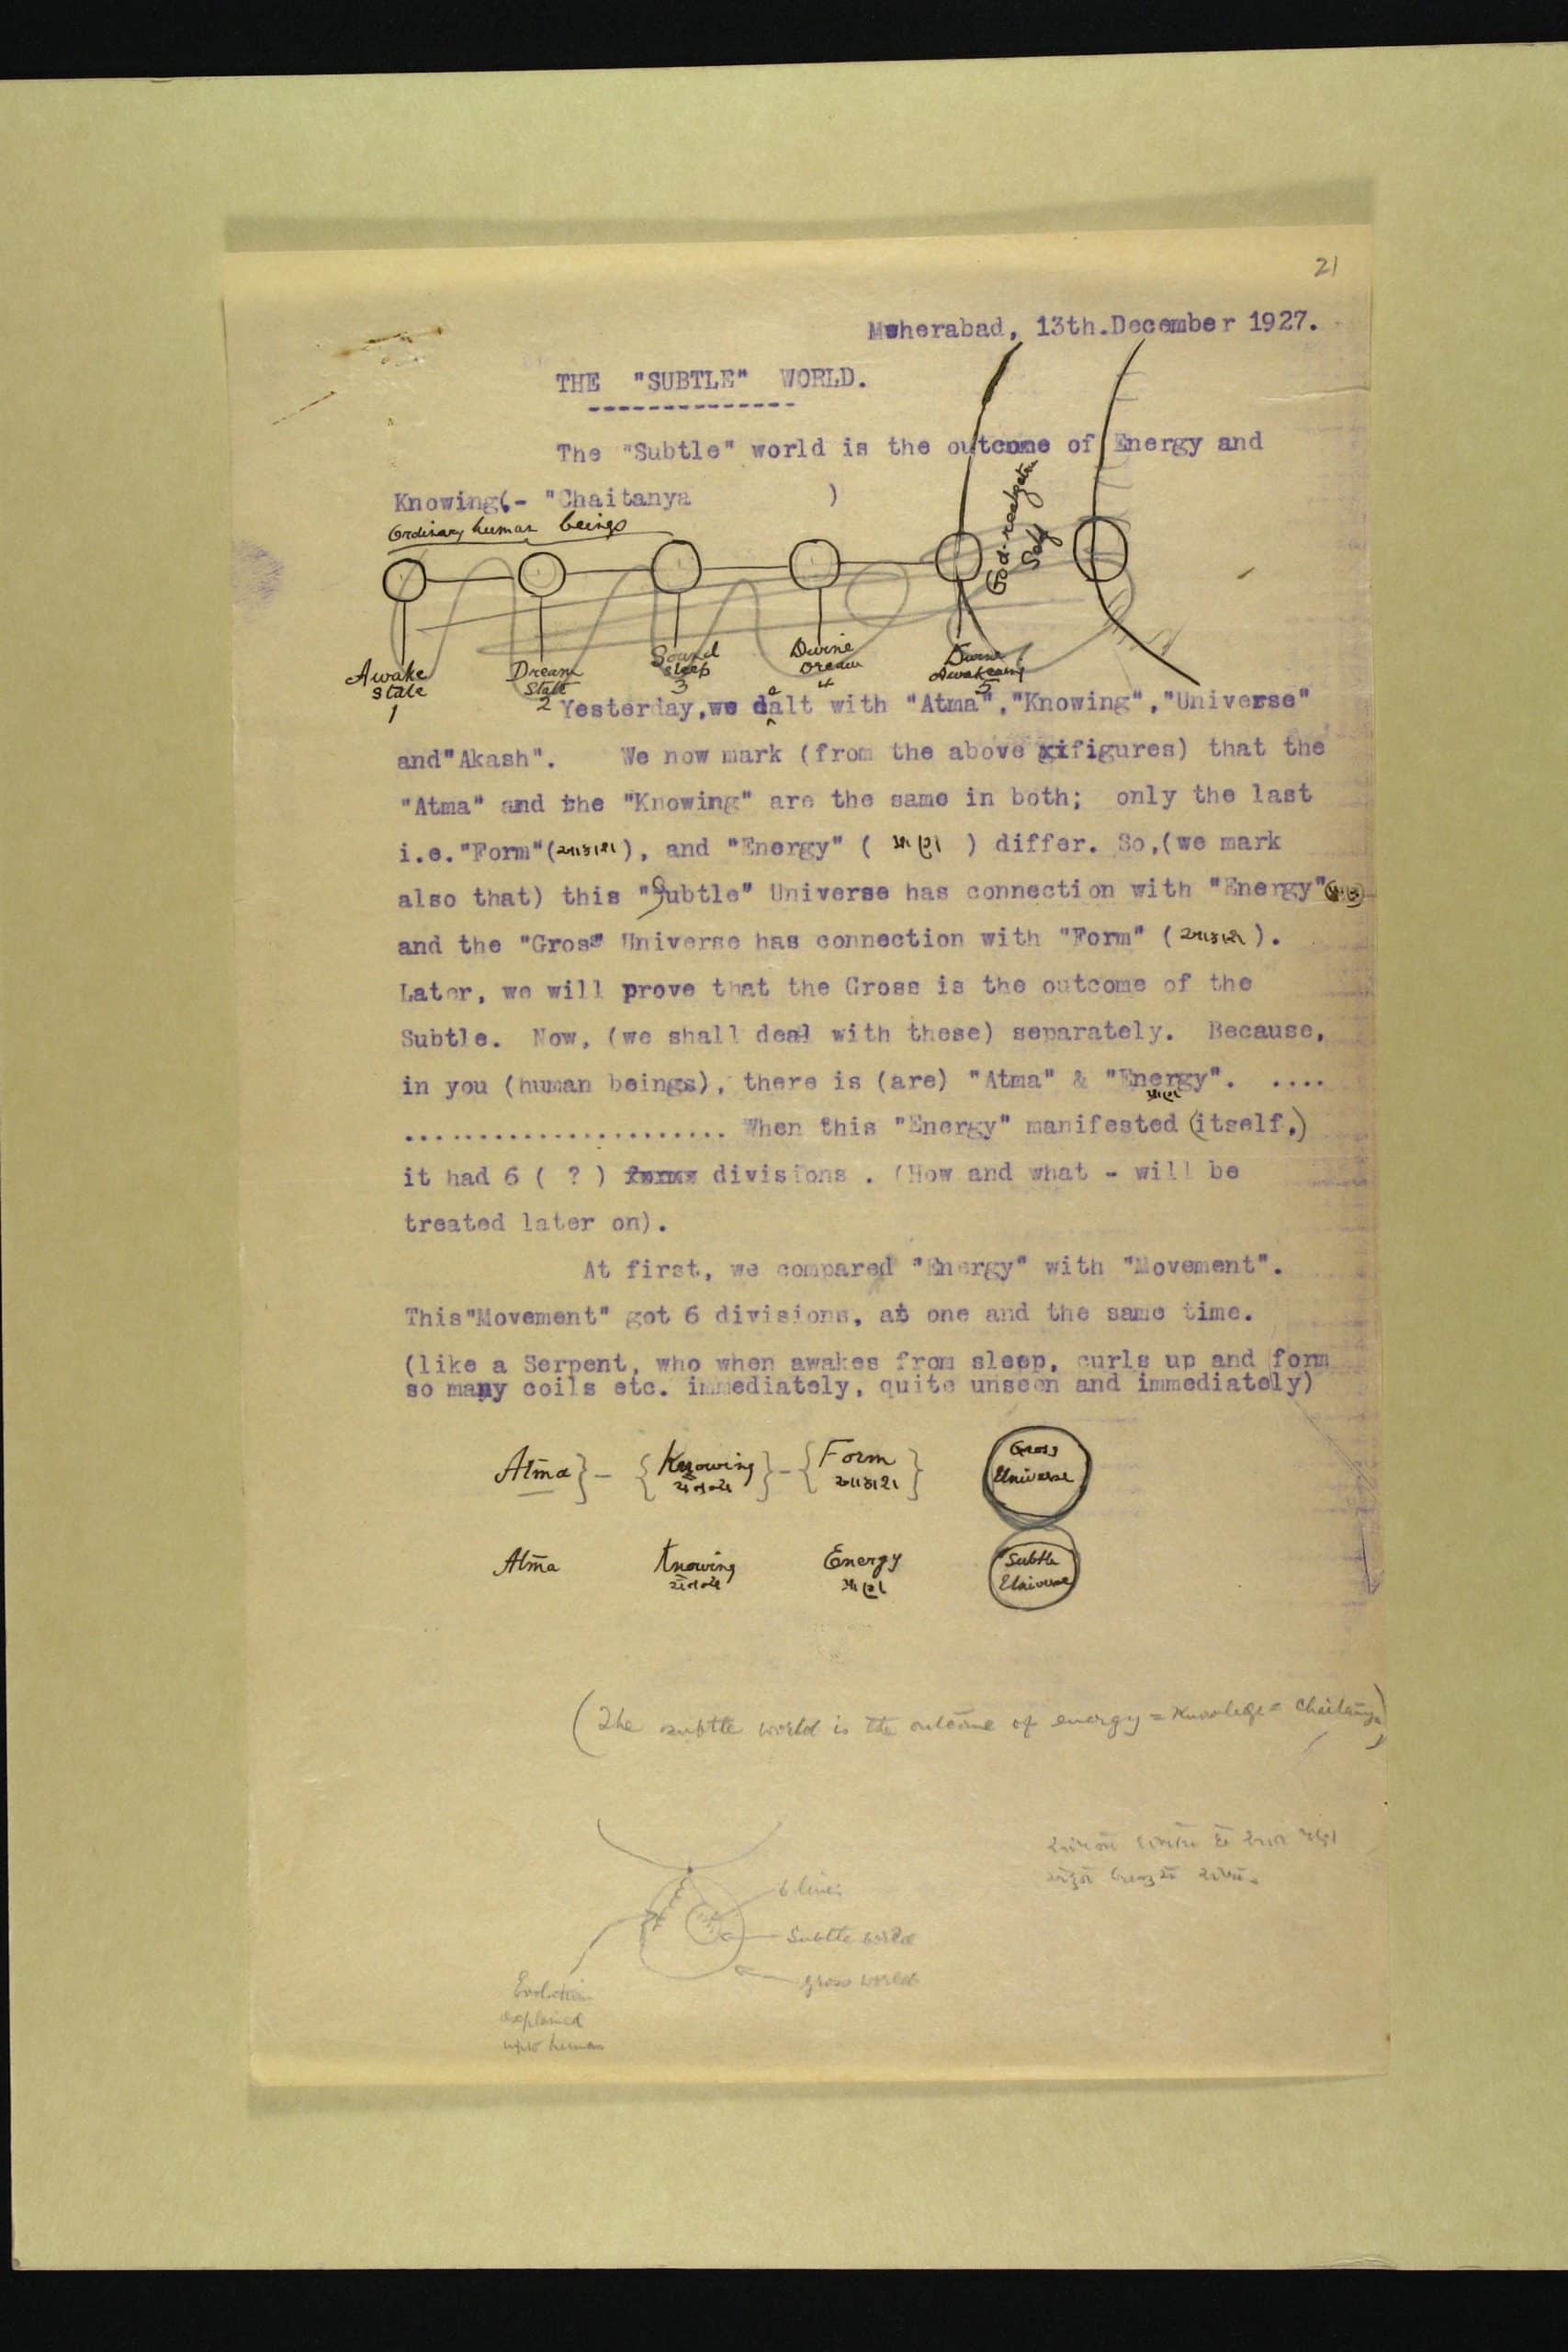 21
Meherabad, 13th.December 1927.
THE "SUBTLE" WORLD.
--------------
The "Subtle" world is the outcome of Energy and
Knowing(- "Chaitanya )
Ordinary human beings
God-realized
Awake State 1
Dream State 2
Sound Sleep 3
Divine Dream 4
Divine Awakening 5
Yesterday,we dealt with "Atma","Knowing","Universe"
and"Akash". We now mark (from the above xifigures) that the
"Atma" and the "Knowing" are the same in both; only the last
i.e."Form"(આકાશ), and "Energy" ( પ્રાણ ) differ. So,(we mark
also that) this "Subtle" Universe has connection with "Energy"
and the "Gross" Universe has connection with "Form" (આકાશ).
Later, we will prove that the Gross is the outcome of the
Subtle. Now, (we shall deal with these) separately. Because,
in you (human beings), there is (are) "Atma" & "Energy". ....
પ્રાણ
...................... When this "Energy" manifested (itself,)
it had 6 ( ? ) forms divisions . (How and what - will be
treated later on).
At first, we compared "Energy" with "Movement".
This"Movement" got 6 divisions, at one and the same time.
(like a Serpent, who when awakes from sleep, curls up and form
so many coils etc. immediately, quite unseen and immediately)
Atma } - { Knowing } - { Form } Gross Universe
આકાશ
Atma Knowing Energy Subtle Universe
પ્રાણ
(The subtle world is the outcome of energy = Knowledge = Chaitanya)
6 lines
Subtle world
gross world
Evolution
explained
upto human